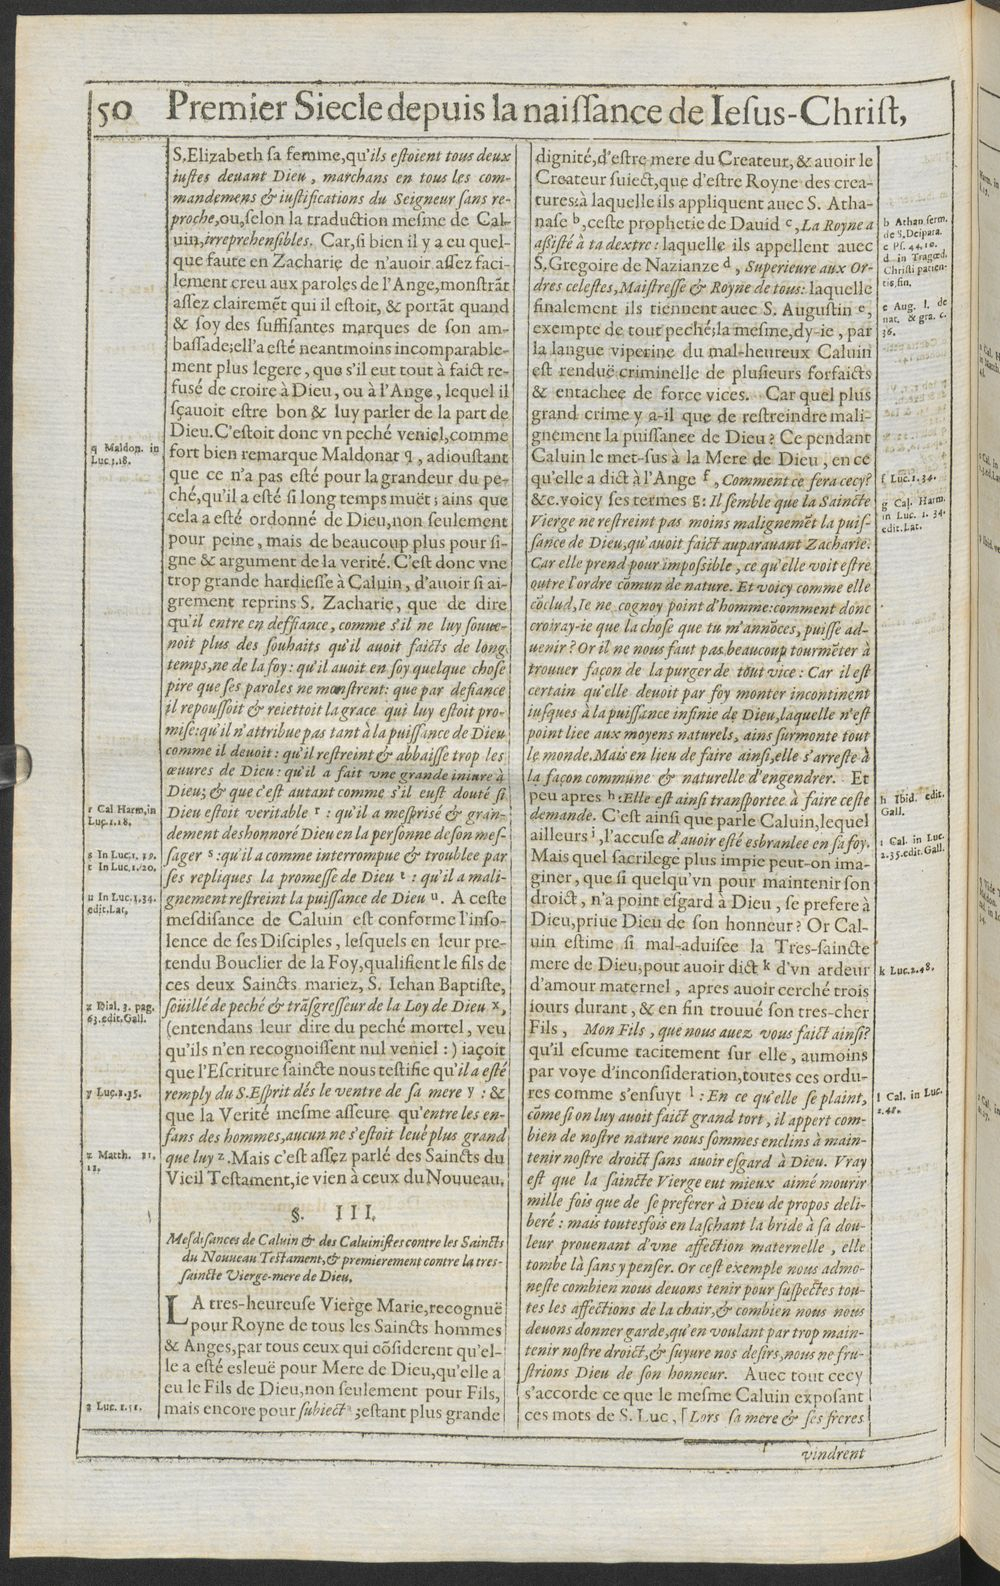 50 Premier Siecle depuis la naiſſance de Ieſus-Chriſt,
S. Elizabeth ſa femme, qu'ils eſtoient tous deux
iuſtes deuant Dieu, marchans en tous les com-
mandemens & iuſtifications du Seigneur ſans re-
proche, ou, ſelon la traduction meſme de Cal-
uin, irreprehenſibles. Car, ſi bien il y a eu quel-
que faute en Zacharie de n'auoir aſſez faci-
lement creu aux paroles de l'Ange, monſtrãt
aſſez clairemẽt qui il eſtoit, & portãt quand
& ſoy des ſuffiſantes marques de ſon am-
baſſade; ell'a eſté neantmoins incomparable-
ment plus legere, que s'il eut tout à faict re-
fuſé de croire à Dieu, ou à l'Ange, lequel il
ſçauoit eſtre bon & luy parler de la part de
Dieu. C'eſtoit donc vn peché veniel, comme
fort bien remarque Maldonat q, adiouſtant
que ce n'a pas eſté pour la grandeur du pe-
ché, qu'il a eſté ſi long temps muët; ains que
cela a eſté ordonné de Dieu, non ſeulement
pour peine, mais de beaucoup plus pour ſi-
gne & argument de la verité. C'eſt donc vne
trop grande hardieſſe à Caluin, d'auoir ſi ai-
grement reprins S. Zacharie, que de dire
qu'il entre en deffiance, comme s'il ne luy ſouue-
noit plus des ſouhaits qu'il auoit faicts de long
temps, ne de la foy: qu'il auoit en ſoy quelque choſe
pire que ſes paroles ne monſtrent: que par defiance
il repouſſoit & reiettoit la grace qui luy eſtoit pro-
miſe: qu'il n'attribue pas tant à la puiſſance de Dieu
comme il deuoit: qu'il reſtreint & abbaiſſe trop les
œuures de Dieu: qu'il a fait vne grande iniure à
Dieu; & que c'eſt autant comme s'il euſt douté ſi
Dieu eſtoit veritable r : qu'il a meſpriſé & gran-
dement deshonnoré Dieu en la perſonne de ſon meſ-
ſager s : qu'il a comme interrompue & troublee par
ſes repliques la promeſſe de Dieu t : qu'il a mali-
gnement reſtreint la puiſſance de Dieu u. A ceſte
mesdiſance de Caluin eſt conforme l'inſo-
lence de ſes Diſciples, leſquels en leur pre-
tendu Bouclier de la Foy, qualifient le fils de
ces deux Saincts mariez, S. Iehan Baptiſte,
ſoüillé de peché & trãſgreſſeur de la Loy de Dieu x,
(entendans leur dire du peché mortel, veu
qu'ils n'en recognoiſſent nul veniel :) iaçoit
que l'Eſcriture ſaincte nous teſtifie qu'il a eſté
remply du S. Eſprit dés le ventre de ſa mere y : &
que la Verité meſme aſſeure qu'entre les en-
fans des hommes, aucun ne s'eſtoit leué plus grand
que luy z. Mais c'eſt aſſez parlé des Saincts du
Vieil Teſtament, ie vien à ceux du Nouueau.
§. III.
Mesdiſances de Caluin & des Caluiniſtes contre les Saincts
du Nouueau Teſtament, & premierement contre la tres-
ſaincte Vierge-mere de Dieu.
LA tres-heureuſe Vierge Marie, recognuë
pour Royne de tous les Saincts hommes
& Anges, par tous ceux qui cõſiderent qu'el-
le a eſté esleuë pour Mere de Dieu, qu'elle a
eu le Fils de Dieu, non ſeulement pour Fils,
mais encore pour ſubiect a ; eſtant plus grande
q Maldon. in
Luc.1.18.
r Cal Harm. in
Luc.1.18.
s In Luc.1.19.
t In Luc.1.20.
u In Luc.1.34.
edit. Lat.
x Dial. 3. pag.
63. edit. Gall.
y Luc.1.35.
z Matth. 11.
11.
a Luc. 1.51.
dignité, d'eſtre mere du Createur, & auoir le
Createur ſuiect, que d'eſtre Royne des crea-
tures: à laquelle ils appliquent auec S. Atha-
naſe b, ceſte prophetie de Dauid c, La Royne a
aſſiſté à ta dextre: laquelle ils appellent auec
S. Gregoire de Nazianze d, Superieure aux Or-
dres celeſtes, Maiſtreſſe & Royne de tous: laquelle
finalement ils tiennent auec S. Auguſtin e,
exempte de tout peché; la meſme, dy-ie, par
la langue viperine du mal-heureux Caluin
eſt renduë criminelle de pluſieurs forfaicts
& entachee de force vices. Car quel plus
grand crime y a-il que de reſtreindre mali-
gnement la puiſſance de Dieu? Ce pendant
Caluin le met-ſus à la Mere de Dieu, en ce
qu'elle a dict à l'Ange f, Comment ce ſera cecy?
&c. voicy ſes termes g: Il ſemble que la Saincte
Vierge ne reſtreint pas moins malignemẽt la puiſ-
ſance de Dieu, qu'auoit faict auparauant Zacharie.
Car elle prend pour impoſſible, ce qu'elle voit eſtre
outre l'ordre cõmun de nature. Et voicy comme elle
cõclud, Ie ne cognoy point d'homme: comment dõnc
croiray-ie que la choſe que tu m'annõces, puiſſe ad-
uenir? Or il ne nous faut pas beaucoup tourmẽter à
trouuer façon de la purger de tout vice: Car il eſt
certain qu'elle deuoit par foy monter incontinent
iuſques à la puiſſance infinie de Dieu, laquelle n'eſt
point liee aux moyens naturels, ains ſurmonte tout
le monde. Mais en lieu de faire ainſi, elle s'arreſte à
la façon commune & naturelle d'engendrer. Et
peu apres h: Elle eſt ainſi tranſportee à faire ceſte
demande. C'eſt ainſi que parle Caluin, lequel
ailleurs i, l'accuſe d'auoir eſté esbranlee en ſa foy.
Mais quel ſacrilege plus impie peut-on ima-
giner, que ſi quelqu'vn pour maintenir ſon
droict, n'a point eſgard à Dieu, ſe prefere à
Dieu, priue Dieu de ſon honneur? Or Cal-
uin eſtime ſi mal-aduiſee la Tres-ſaincte
mere de Dieu, pour auoir dict k d'vn ardeur
d'amour maternel, apres auoir cerché trois
iours durant, & en fin trouué ſon tres-cher
Fils, Mon Fils, que nous auez vous faict ainſi?
qu'il eſcume tacitement ſur elle, aumoins
par voye d'inconſideration, toutes ces ordu-
res comme s'enſuyt l : En ce qu'elle ſe plaint,
cõme ſi on luy auoit faict grand tort, il appert com-
bien de noſtre nature nous ſommes enclins à main-
tenir noſtre droict ſans auoir eſgard à Dieu. Vray
eſt que la ſaincte Vierge eut mieux aimé mourir
mille fois que de ſe preferer à Dieu de propos deli-
beré: mais toutesfois en laſchant la bride à ſa dou-
leur prouenant d'vne affection maternelle, elle
tombe là ſans y penſer. Or ceſt exemple nous admo-
neſte combien nous deuons tenir pour ſuſpectes tou-
tes les affections de la chair, & combien nous nous
deuons donner garde, qu'en voulant par trop main-
tenir noſtre droict, & ſuyure nos deſirs, nous ne fru-
ſtrions Dieu de ſon honneur. Auec tout cecy
s'accorde ce que le meſme Caluin expoſant
ces mots de S. Luc, [Lors ſa mere & ſes freres
vindrent
b Athan ſerm.
de S. Deipara.
c Pſ. 44.10.
d in Tragœd.
Chriſti patien-
tis, fin.
e Aug. l. de
nat. & gra. c.
36.
f Luc.1.34.
g Cal. Harm.
in Luc. 1. 34.
edit. Lat.
h Ibid. edit.
Gall.
i Cal. in Luc.
2.35. edit. Gall.
k Luc.2.48.
l Cal. in Luc.
2.48.